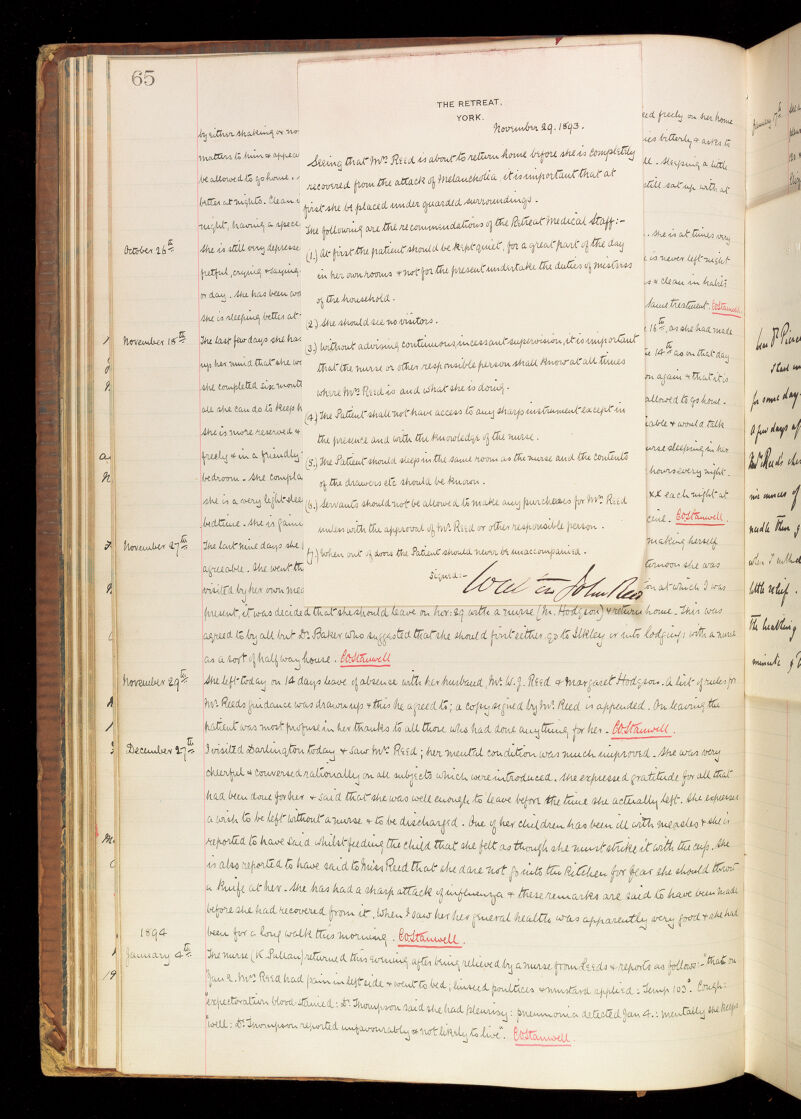 65
THE RETREAT,
YORK.
November 29. 1893.
Seeing that Mrs Reed is about to return home before she is completely
recovered from the attack of Melancholia, it is important that at
first she be placed under guarded surroundings.
The following are the recommendations of the Retreat Medical Staff:-
(1.) At first the patient should be kept quiet, for a great part of the day
in her own rooms & not for the present undertake the duties of mistress
of the household.
(2.) She should see no visitors.
(3.) Without advising continuous, incessant supervision, it is important
that the nurse or other responsible person shall know at all times
where Mrs Reed is and what she is doing.
(4.) The Patient shall not have access to any sharp instrument except in
the presence and with the knowledge of the nurse.
(5.) The Patient should sleep in the same room as the nurse and the contents
of the drawers etc should be known.
(6.) Servants should not be allowed to make any purchases for Mrs Reed
unless with the approval of Mr Reed or other responsible person.
(7.) When out of doors the Patient should never be unaccompanied.
Signed:- John Reed
by either shaking or no
matters to him & appea
be allowed to go home.
better at nights. Clean i
night, having a spec
October 26th She is still very depresse
fretful, crying & saying
or day. She has been
She is sleeping better at
November 15th The last few days she has
up her mind that she wo
she completed six mont
all she can do to keep h
She is more reserved &
freely & in a friendly
bedroom. She compla
She is a very light slee
bedtime. She is
November 27th The last nine days she
agreeable. She went th
visited by her own med
ed freely on her home
ies bitterly & asks to
ll. Sleeping a little
still sat up with at
. She is at times very
is never left night
s & clean in habits
Same treatment. CStanwell
16th, as she had made
14th as on that day
on again & that it is
allowed to go home.
iable & would talk
nurse sleeping in her
hours every night.
xx each night at
cine. CStanwell.
making herself
ternoon she was
ion at which I was
present, it was decided that she should leave on Nov: 29 with a nurse (M. Hodgson) & return home. This was
agreed to by all but Dr. Baker who suggested that she should first either go to Ilkley or into lodgings with a nurse
as a sort of halfway house. CStanwell
November 29th She left today on 14 days leave of absence with her husband, Mr. W. J. Reed & Margaret Hodgson. A list of rules for
Mr. Reeds guidance was drawn up & this he agreed to; a copy signed by Mr. Reed is appended. On leaving the
patient was most profuse in her thanks to all those who had done anything for her. CStanwell.
December 27th I visited Darlington today & saw Mrs Reed; her mental condition was much improved. She was very
cheerful & conversed rationally on all subjects which were introduced. She expressed gratitude for all that
had been done for her & said that she was well enough to leave before the time she actually left. She expresses
a wish to be left without a nurse & to be discharged. One of her children has been ill with measles & she is
reported to have said whilst feeding the child that she felt as though she must strike it with the cup. She
is also reported to have said to Miss Reed that she dare not go into the kitchen for fear she should throw
a knife at her. She has had a sharp attack of influenza & these remarks are said to have been made
before she had recovered from it. When I saw her her general health was apparently very good & she had
been for a long walk this morning. CStanwell.
1894
January 4th The nurse (K. Pullan) returned this evening after being relieved by a nurse from Leeds & reports as follows:- "that on
Jan 2. Mrs Reed had pain in left side & went to bed; linseed poultices & mustard applied: Temp 103°. Cough:
"expectoration blood stained: Dr. Thompson said she had pleurisy: pneumonia detected Jan 4.: mentally she keeps
"well: Dr. Thompson reported unfavourably & not likely to live". CStanwell.